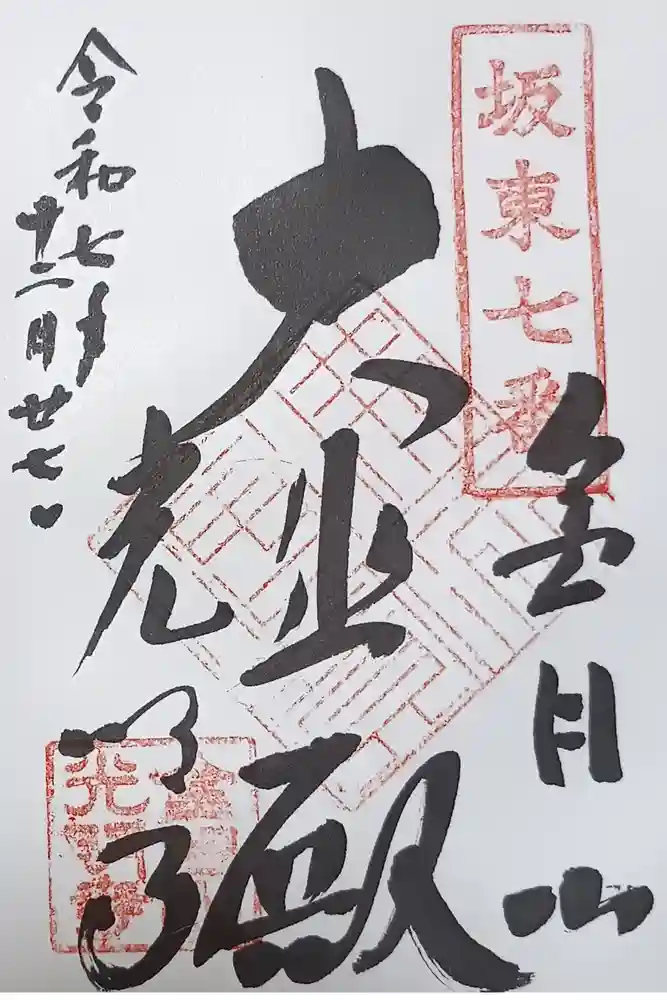 坂東七番
金目山
大悲殿
光明寺
令和七年
十二月廿七日
金目山
光明寺